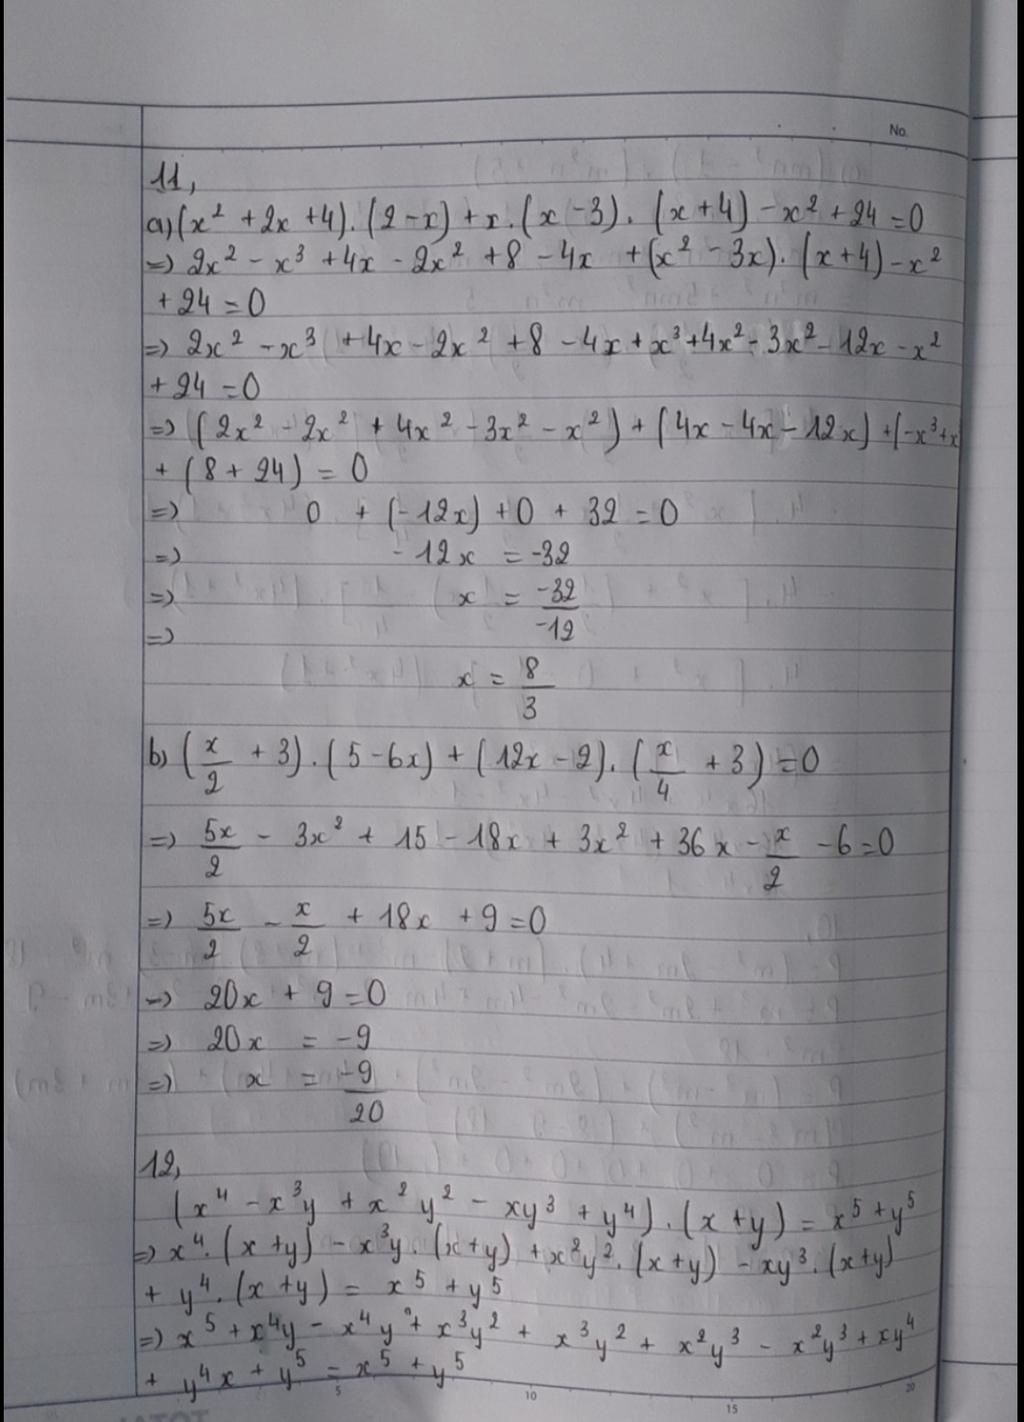 No.
11,
a) (x² + 2x + 4) . (2 - x) + x . (x - 3) . (x + 4) - x² + 24 = 0
=> 2x² - x³ + 4x - 2x² + 8 - 4x + (x² - 3x) . (x + 4) - x²
+ 24 = 0
=> 2x² - x³ + 4x - 2x² + 8 - 4x + x³ + 4x² - 3x² - 12x - x²
+ 24 = 0
=> (2x² - 2x² + 4x² - 3x² - x²) + (4x - 4x - 12x) + (-x³ + x
+ (8 + 24) = 0
=> 0 + (-12x) + 0 + 32 = 0
=> -12x = -32
=> x = -32/-12
=>
x = 8/3
b) (x/2 + 3) . (5 - 6x) + (12x - 2) . (x/4 + 3) = 0
=> 5x/2 - 3x² + 15 - 18x + 3x² + 36x - x/2 - 6 = 0
=> 5x/2 - x/2 + 18x + 9 = 0
=> 20x + 9 = 0
=> 20x = -9
=> x = -9/20
12,
(x⁴ - x³y + x²y² - xy³ + y⁴) . (x + y) = x⁵ + y⁵
=> x⁴ . (x + y) - x³y . (x + y) + x²y² . (x + y) - xy³ . (x + y)
+ y⁴ . (x + y) = x⁵ + y⁵
=> x⁵ + x⁴y - x⁴y + x³y² + x³y² + x²y³ - x²y³ + xy⁴
+ y⁴x + y⁵ = x⁵ + y⁵
5 10 15 20